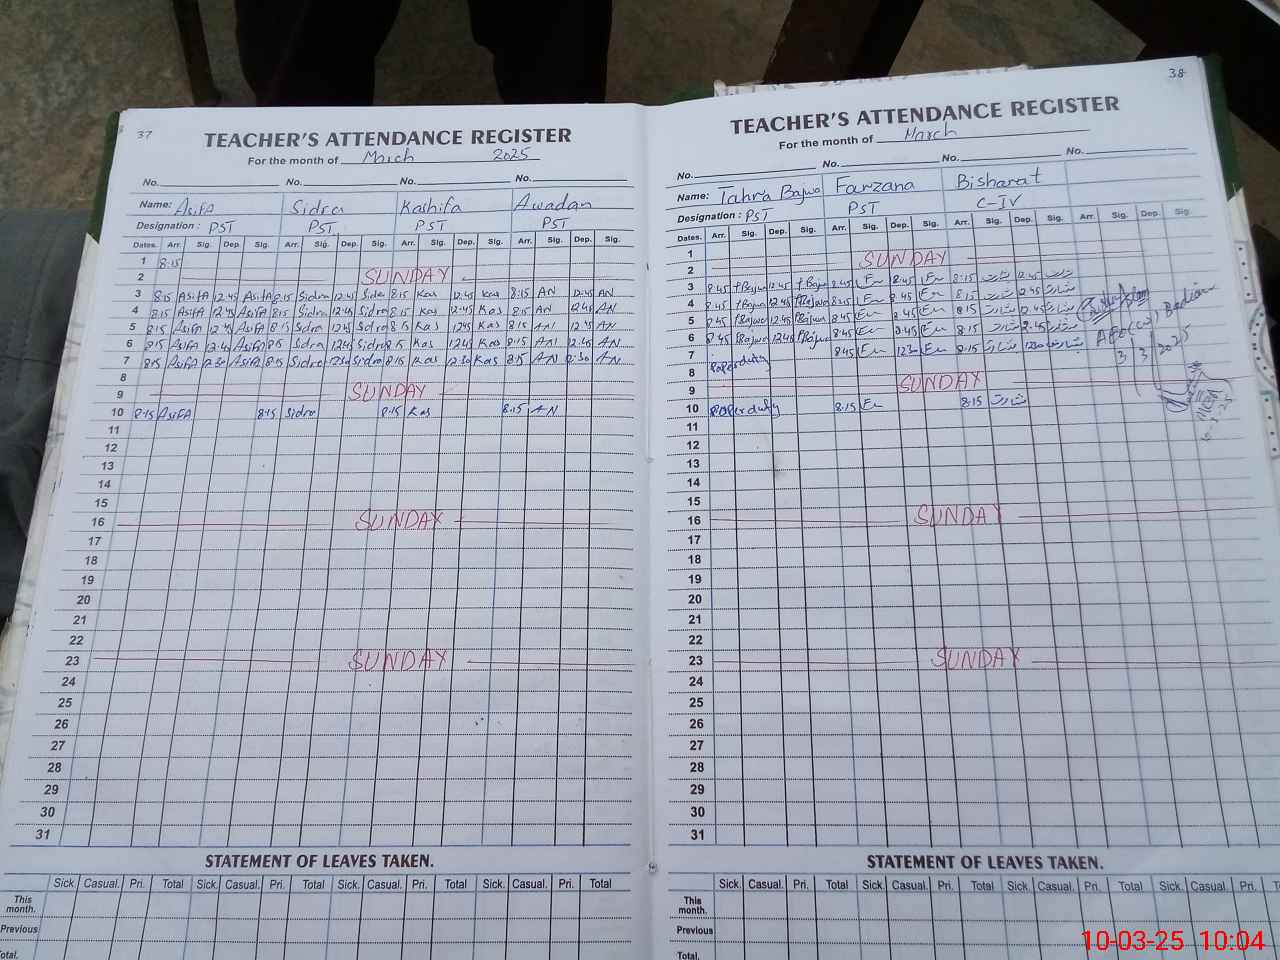 37
TEACHER'S ATTENDANCE REGISTER
For the month of March 2025
No. No. No. No.
Name: Asifa Sidra Kashifa Awadan
Designation: PST PST PST PST
Dates. Arr. Sig. Dep. Sig. Arr. Sig. Dep. Sig. Arr. Sig. Dep. Sig. Arr. Sig. Dep. Sig.
1 8:15
2 SUNDAY
3 8:15 Asifa 12:45 Asifa 8:15 Sidra 12:45 Sidra 8:15 Kas 12:45 Kas 8:15 AN 12:45 AN
4 8:15 Asifa 12:45 Asifa 8:15 Sidra 12:45 Sidra 8:15 Kas 12:45 Kas 8:15 AN 12:45 AN
5 8:15 Asifa 12:45 Asifa 8:15 Sidra 12:45 Sidra 8:15 Kas 12:45 Kas 8:15 AN 12:45 AN
6 8:15 Asifa 12:45 Asifa 8:15 Sidra 12:45 Sidra 8:15 Kas 12:45 Kas 8:15 AN 12:45 AN
7 8:15 Asifa 12:30 Asifa 8:15 Sidra 12:30 Sidra 8:15 Kas 12:30 Kas 8:15 AN 12:30 AN
8
9 SUNDAY
10 8:15 Asifa 8:15 Sidra 8:15 Kas 8:15 AN
11
12
13
14
15
16 SUNDAY
17
18
19
20
21
22
23 SUNDAY
24
25
26
27
28
29
30
31
STATEMENT OF LEAVES TAKEN.
Sick. Casual. Pri. Total Sick. Casual. Pri. Total Sick. Casual. Pri. Total Sick. Casual. Pri. Total
This month.
Previous
Total.
38
TEACHER'S ATTENDANCE REGISTER
For the month of March
No. No. No. No.
Name: Tahra Bajwa Farzana Bisharat
Designation: PST PST C-IV
Dates. Arr. Sig. Dep. Sig. Arr. Sig. Dep. Sig. Arr. Sig. Dep. Sig. Arr. Sig. Dep. Sig.
1
2 SUNDAY
3 8:45 Bajwa 12:45 Bajwa 8:45 12:45 8:15 بشارت 12:45 بشارت
4 8:45 Bajwa 12:45 Bajwa 8:15 بشارت 12:45 بشارت
5 8:45 Bajwa 12:45 Bajwa 8:45 8:15 بشارت 12:45 بشارت
6 8:45 Bajwa 12:45 Bajwa 8:45 8:15 بشارت 12:45 بشارت
7 8:45 12:30 8:15 بشارت 12:30 بشارت
8 Paper duty
9 SUNDAY
10 Paper duty 8:15 8:15 بشارت
11
12
13
14
15
16 SUNDAY
17
18
19
20
21
22
23 SUNDAY
24
25
26
27
28
29
30
31
AEO (w) Badian
3/3/2025
STATEMENT OF LEAVES TAKEN.
Sick. Casual. Pri. Total Sick. Casual. Pri. Total Sick. Casual. Pri. Total Sick. Casual. Pri.
This month.
Previous
Total.
10-03-25 10:04